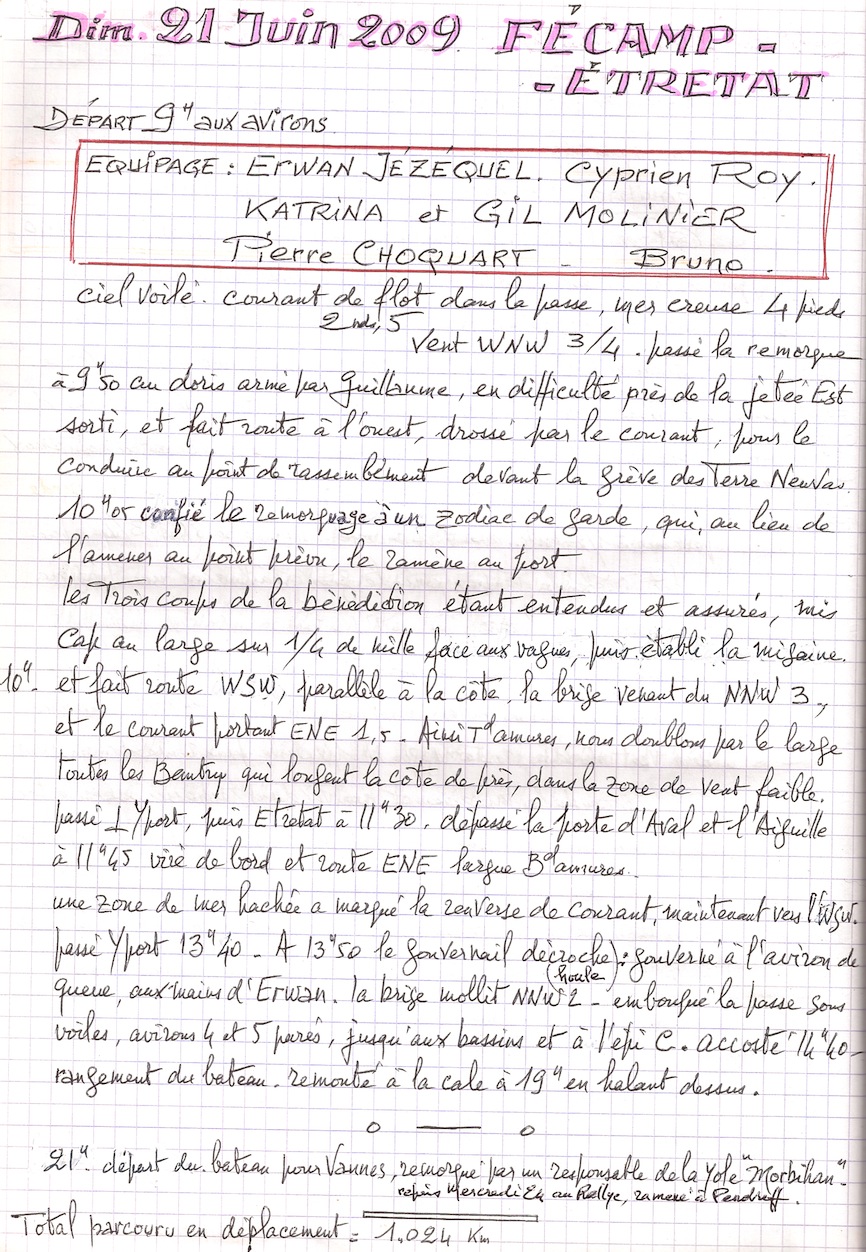 Dim. 21 Juin 2009 FÉCAMP -
- ÉTRETAT
DÉPART 9H aux avirons
EQUIPAGE : ERWAN JÉZÉQUEL. Cyprien ROY.
KATRINA et GIL MOLINIER
Pierre CHOQUART - Bruno.
ciel voilé. courant de flot dans la passe, mer creuse 4 pieds
2 nds,5
Vent WNW 3/4. passé la remorque
à 9H50 au doris armé par Guillaume, en difficulté près de la jetée Est
sorti, et fait route à l'ouest, drossé par le courant, pour le
conduire au point de rassemblement devant la grève des Terre Neuvas.
10H05 confié le remorquage à un zodiac de garde, qui, au lieu de
l'amener au point prévu, le ramène au port.
les Trois coups de la bénédiction étant entendus et assurés, mis
Cap au large sur 1/4 de mille face aux vagues, puis établi la misaine.
10H- et fait route WSW, parallèle à la côte, la brise venant du NNW 3,
et le courant portant ENE 1,5 - Ainsi Td amures, nous doublons par le large
toutes les Bantry qui longent la côte de près, dans la zone de vent faible.
passé ⊥ Yport, puis Etretat à 11H30. dépassé la porte d'Aval et l'Aiguille
à 11H45 viré de bord et route ENE largue Bd amures.
une zone de mer hachée a marqué la renverse de courant, maintenant vers l'WSW.
passé Yport 13H40 - A 13H50 le gouvernail décroche : gouverné à l'aviron de
(houle)
queue, aux mains d'Erwan. la brise mollit NNW 2 - embouqué la passe sous
voiles, avirons 4 et 5 parés, jusqu'aux bassins et à l'épi C. accosté 14H40 -
rangement du bateau. remonté à la cale à 19H en halant dessus.
21H. départ du bateau pour Vannes, remorqué par un responsable de la Yole "Morbihan".
repris Mercredi 24 au Rallye, ramené à Pendruff.
Total parcouru en déplacement = 1.024 Km